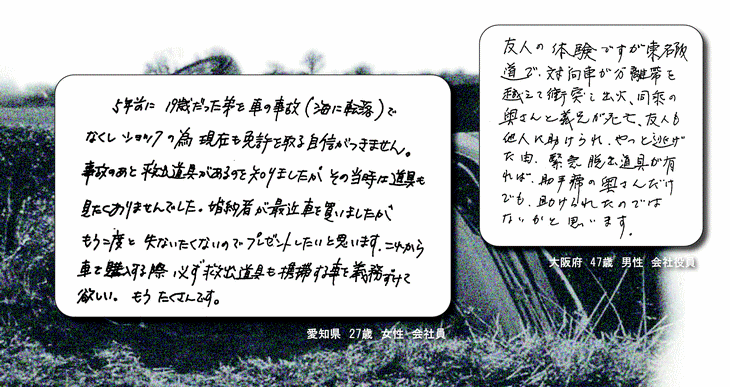 5年前に 19歳だった弟を車の事故(海に転落)で
なくし ショックの為 現在も免許を取る自信がつきません。
事故のあと 救出道具があるのを知りましたが その当時は道具も
見たくありませんでした。婚約者が最近車を買いましたが
もう二度と 失ないたくないのでプレゼントしたいと思います。これから
車を購入する際 必ず救出道具も携帯する事を義務ずけて
欲しい。もう たくさんです。
愛知県 27歳 女性 会社員
友人の 体験ですが東名阪
道で、対向車が分離帯を
越えて衝突し出火、同乗の
奥さんと義兄が死亡、友人も
他人に助けられ、やっと逃げ
た由、緊急脱出道具が有
れば、助手席の奥さんだけ
でも、助けられたのでは
ないかと思います。
大阪府 47歳 男性 会社役員